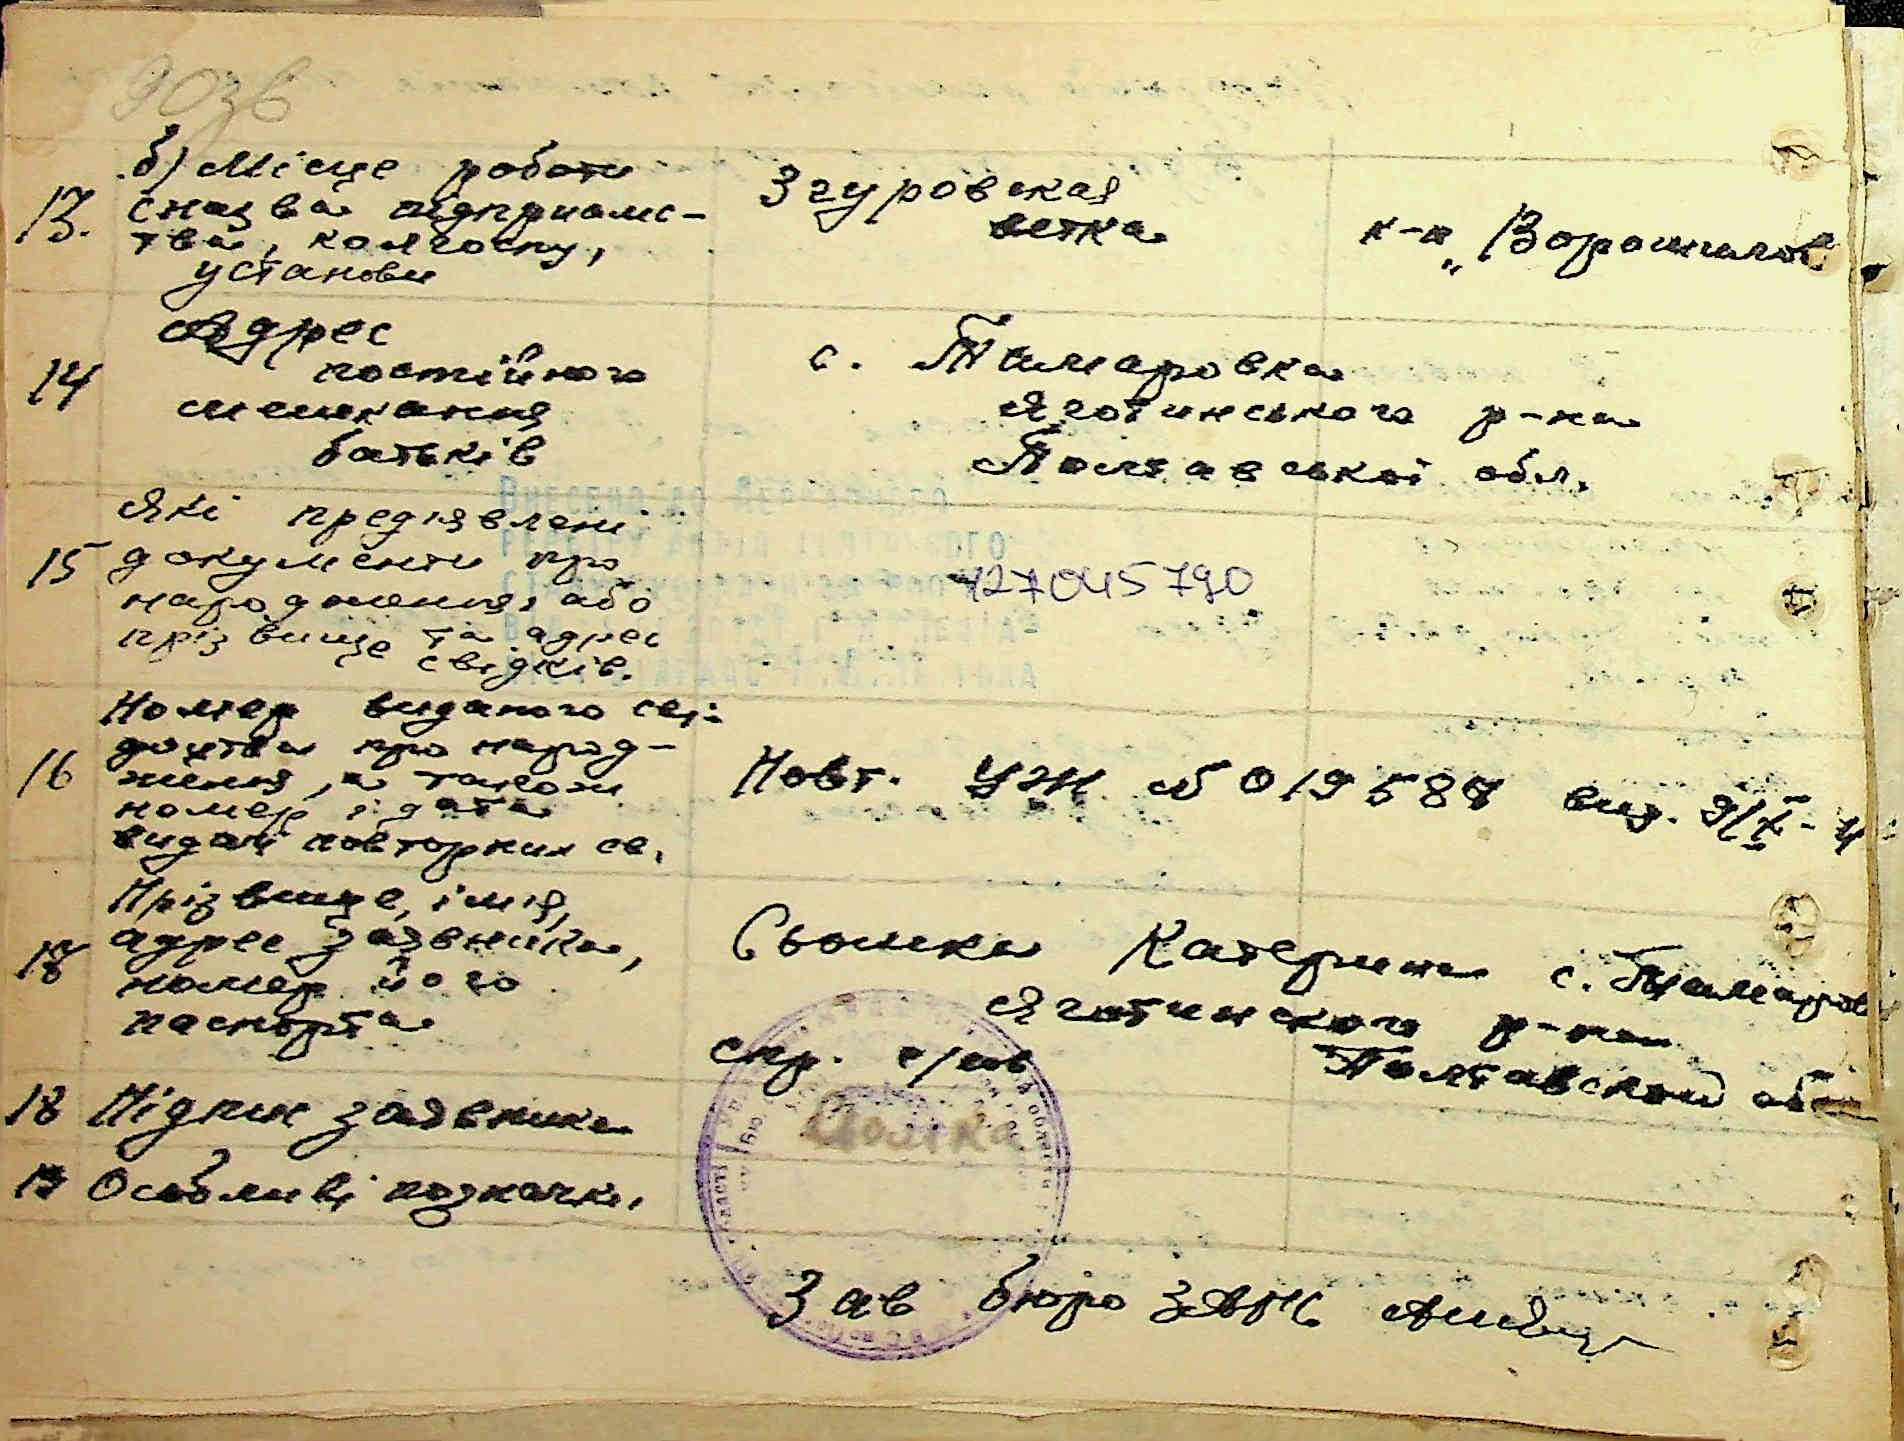 90зв
13.
б) Місце роботи
(назва підприємс-
тва, колгоспу,
установи
Згуровская
ветка
к-п „Ворошилов
14
Адрес
постійного
мешкання
батьків
с. Тимаровка
Яготинського р-на
Полтавської обл.
15
Які пред'явлені
документи про
народження, або
прізвище та адрес
свідків.
427045790
16
Номер виданого сві-
доцтва про народ-
ження, а також
номер і дата
видачі повторних св.
Повт. УЖ № 019587 вид. 9/X-
17
Прізвище, ім'я,
адрес заявника,
номер його
паспорта
Катерина с. Тимаров
Яготинского р-на
Полтавской обл
спр. с/рв
18 Підпис заявника
19 Особливі позначки.
Зав бюро ЗАГС